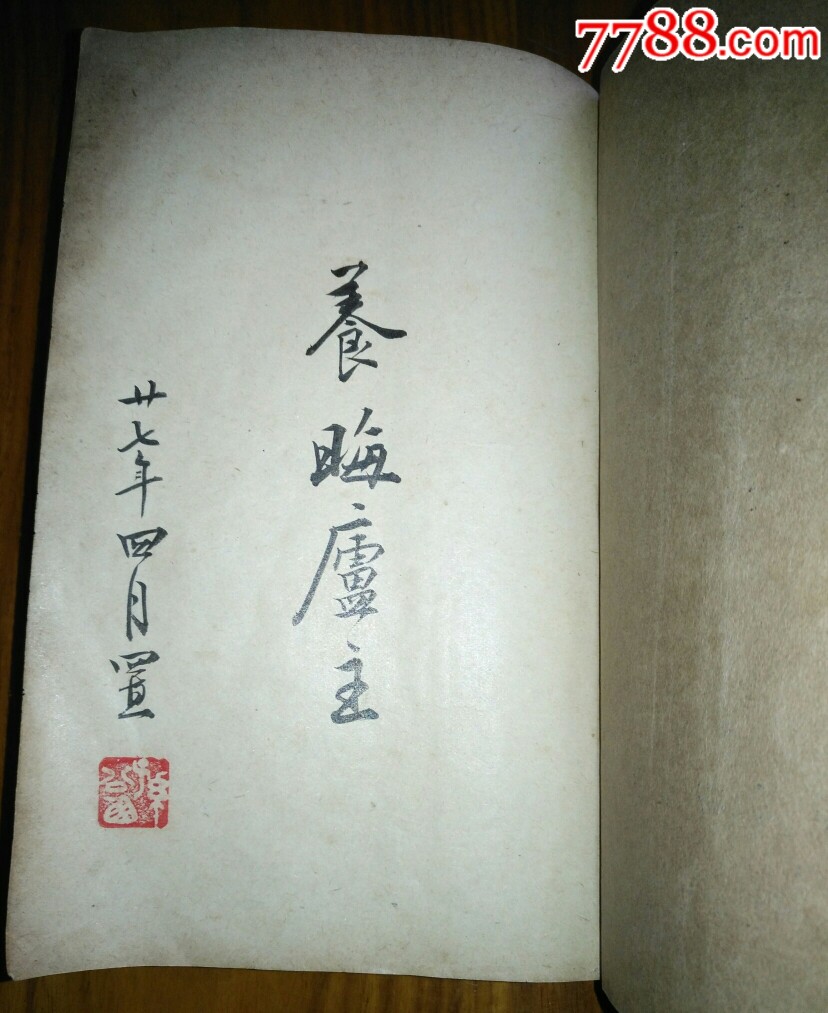 7788.com
養晦廬主
廿七年四月置